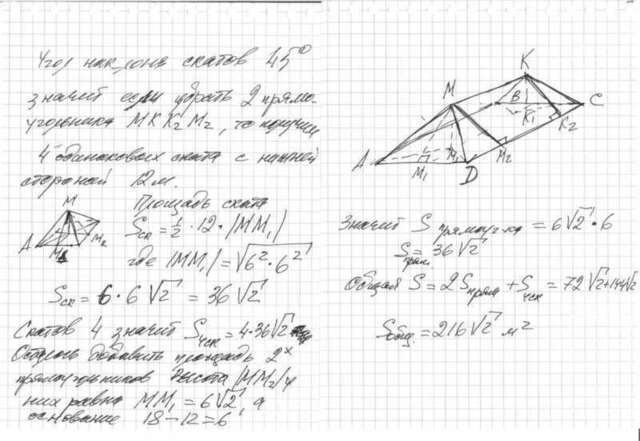 Угол наклона скатов 45°
значит если убрать 2 прямо-
угольника MKK₂M₂, то получим
4 одинаковых ската с нижней
стороной 12 м.
Площадь ската
M
A
M₂
M₁
Sск = 1/2 · 12 · |MM₁|
где |MM₁| = √(6² · 6²)
Sск = 6 · 6√2 = 36√2
Скатов 4 значит S4ск = 4·36√2
Осталось добавить площадь 2ˣ
прямоугольников высота |MM₂| у
них равна MM₁ = 6√2, а
основание 18 − 12 = 6
K
M
B
C
K₁
K₂
A
M₁
D
M₂
Значит S прямоуг-ка = 6√2 · 6
Sпрям = 36√2
Общая S = 2Sпрям + S4ск = 72√2 + 144√2
Sобщ. = 216√2 м²